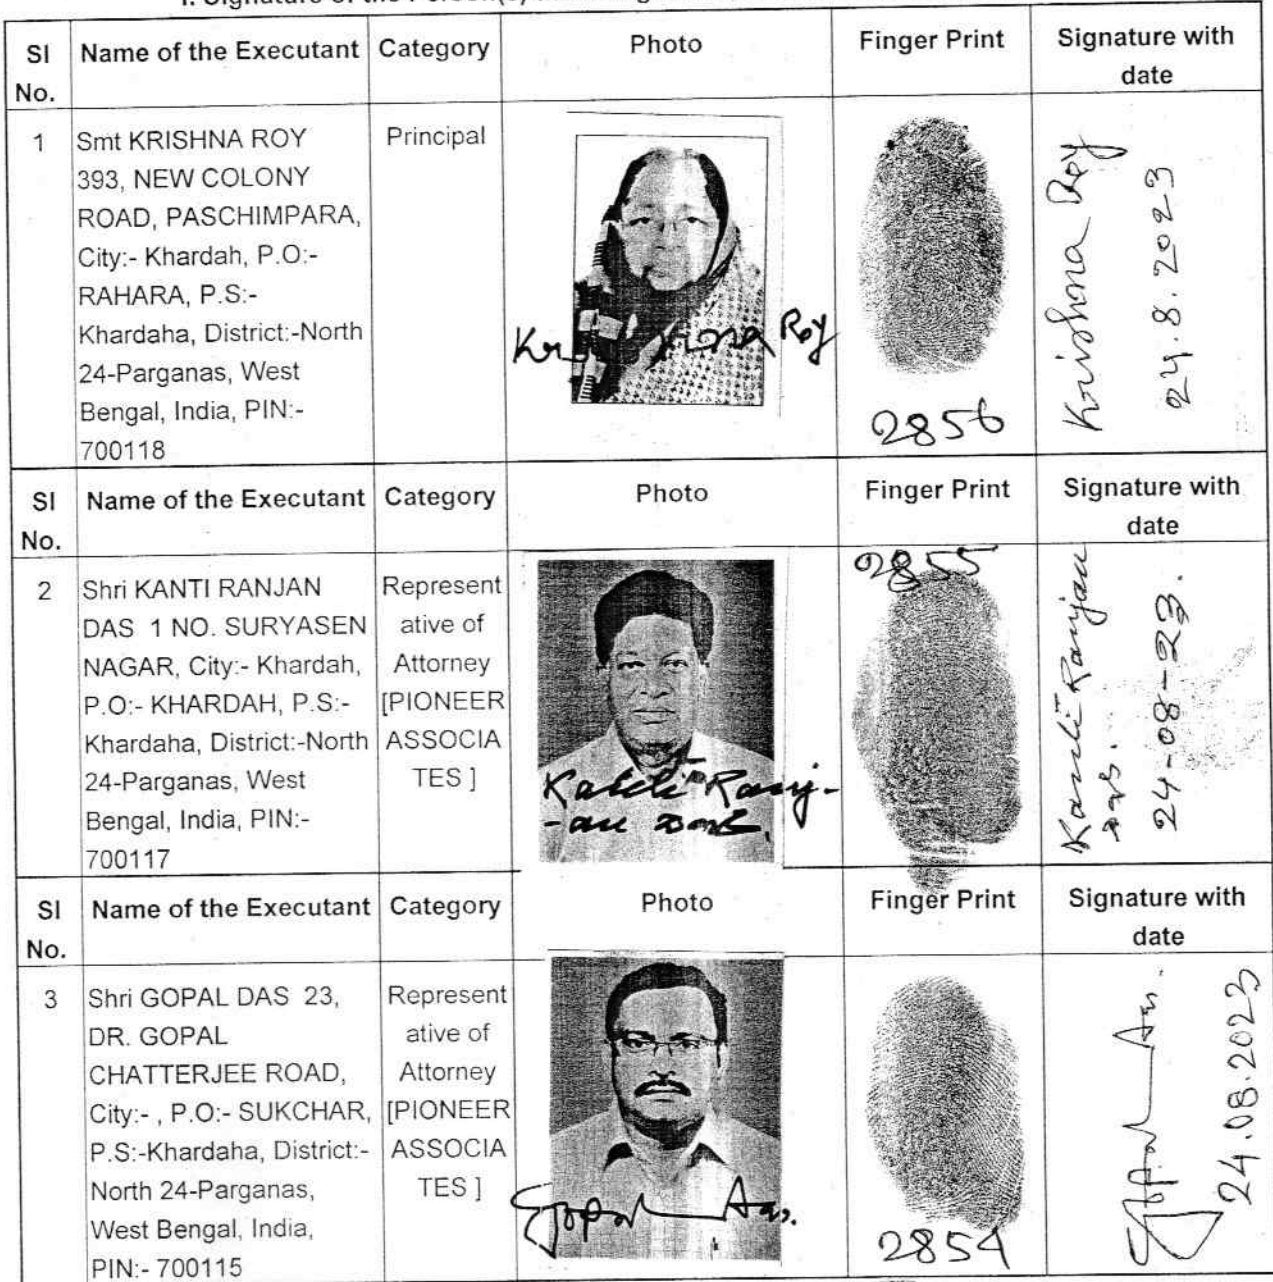 I. Signature of the Person(s)
SI No. Name of the Executant Category Photo Finger Print Signature with date
1 Smt KRISHNA ROY Principal
393, NEW COLONY
ROAD, PASCHIMPARA,
City:- Khardah, P.O:-
RAHARA, P.S:-
Khardaha, District:-North
24-Parganas, West
Bengal, India, PIN:-
700118
Krishna Roy
2856
Krishna Roy
24.8.2023
SI No. Name of the Executant Category Photo Finger Print Signature with date
2 Shri KANTI RANJAN
DAS 1 NO. SURYASEN
NAGAR, City:- Khardah,
P.O:- KHARDAH, P.S:-
Khardaha, District:-North
24-Parganas, West
Bengal, India, PIN:-
700117
Represent
ative of
Attorney
[PIONEER
ASSOCIA
TES ]
Kanti Ranj-
-an Das.
2855
Kanti Ranjan
Das.
24-08-23.
SI No. Name of the Executant Category Photo Finger Print Signature with date
3 Shri GOPAL DAS 23,
DR. GOPAL
CHATTERJEE ROAD,
City:- , P.O:- SUKCHAR,
P.S:-Khardaha, District:-
North 24-Parganas,
West Bengal, India,
PIN:- 700115
Represent
ative of
Attorney
[PIONEER
ASSOCIA
TES ]
Gopal Das.
2854
Gopal Das.
24.08.2023